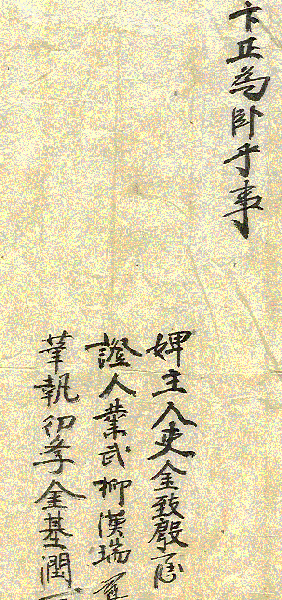 卞正爲臥乎事
婢主人吏金致殷
證人業武柳漢瑞
筆執幼學金基潤